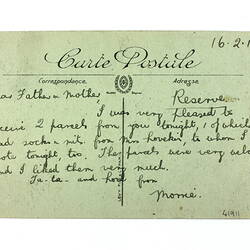 16-2-1
Carte Postale
Correspondance. Adresse
Father & Mother, Reserve
I was very pleased to
receive 2 parcels from you tonight, 1 of which
had socks & mit. from Mrs Lovekin, to whom I
wrote tonight, too. The parcels were very
and I liked them very much.
Ta-ta. and love from
Morrie.
41911